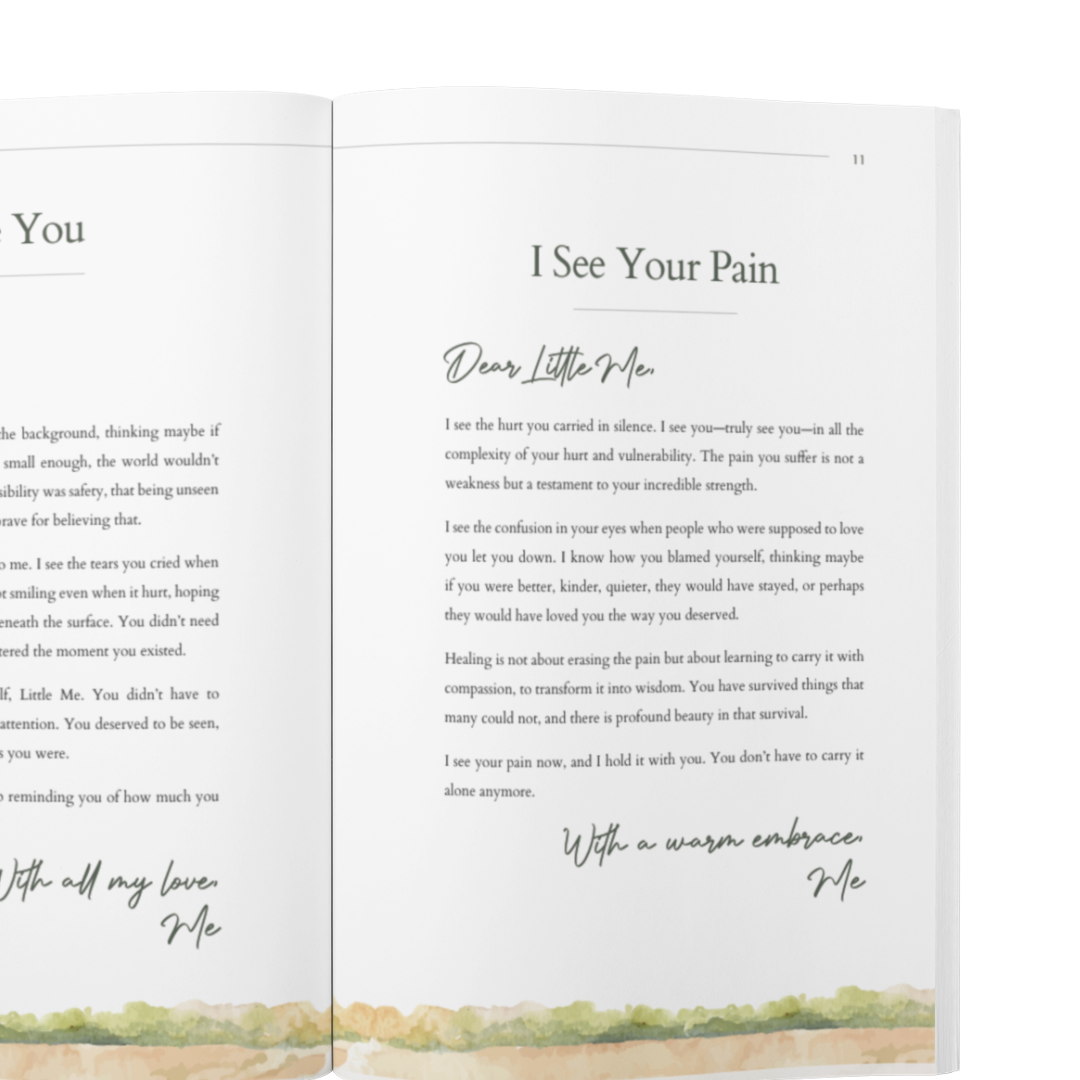 You
the background, thinking maybe if
small enough, the world wouldn't
was safety, that being unseen
for believing that.
me. I see the tears you cried when
smiling even when it hurt, hoping
the surface. You didn't need
the moment you existed.
Little Me. You didn't have to
attention. You deserved to be seen,
you were.
reminding you of how much you
With all my love,
Me
11
I See Your Pain
Dear Little Me,
I see the hurt you carried in silence. I see you—truly see you—in all the
complexity of your hurt and vulnerability. The pain you suffer is not a
weakness but a testament to your incredible strength.
I see the confusion in your eyes when people who were supposed to love
you let you down. I know how you blamed yourself, thinking maybe
if you were better, kinder, quieter, they would have stayed, or perhaps
they would have loved you the way you deserved.
Healing is not about erasing the pain but about learning to carry it with
compassion, to transform it into wisdom. You have survived things that
many could not, and there is profound beauty in that survival.
I see your pain now, and I hold it with you. You don't have to carry it
alone anymore.
With a warm embrace,
Me